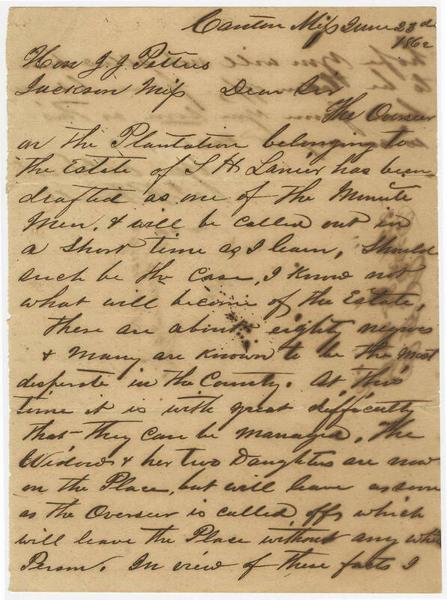 Canton Miss June 23rd
1862
Hon J. J. Pettus
Jackson Miss Dear Sir
The Overseer
on the Plantation belonging to
the Estate of S H Lanier has been
drafted as one of the Minute
Men, & will be called out in
a short time as I learn, Should
such be the Case, I know not
what will become of the Estate,
there are about eighty negroes
& many are known to be the most
desperate in the County. At this
time it is with great difficulty
that they can be managed, The
Widow & her two Daughters are now
on the Place, but will leave as soon
as the Overseer is called off, which
will leave the Place without any white
Person. In view of these facts I